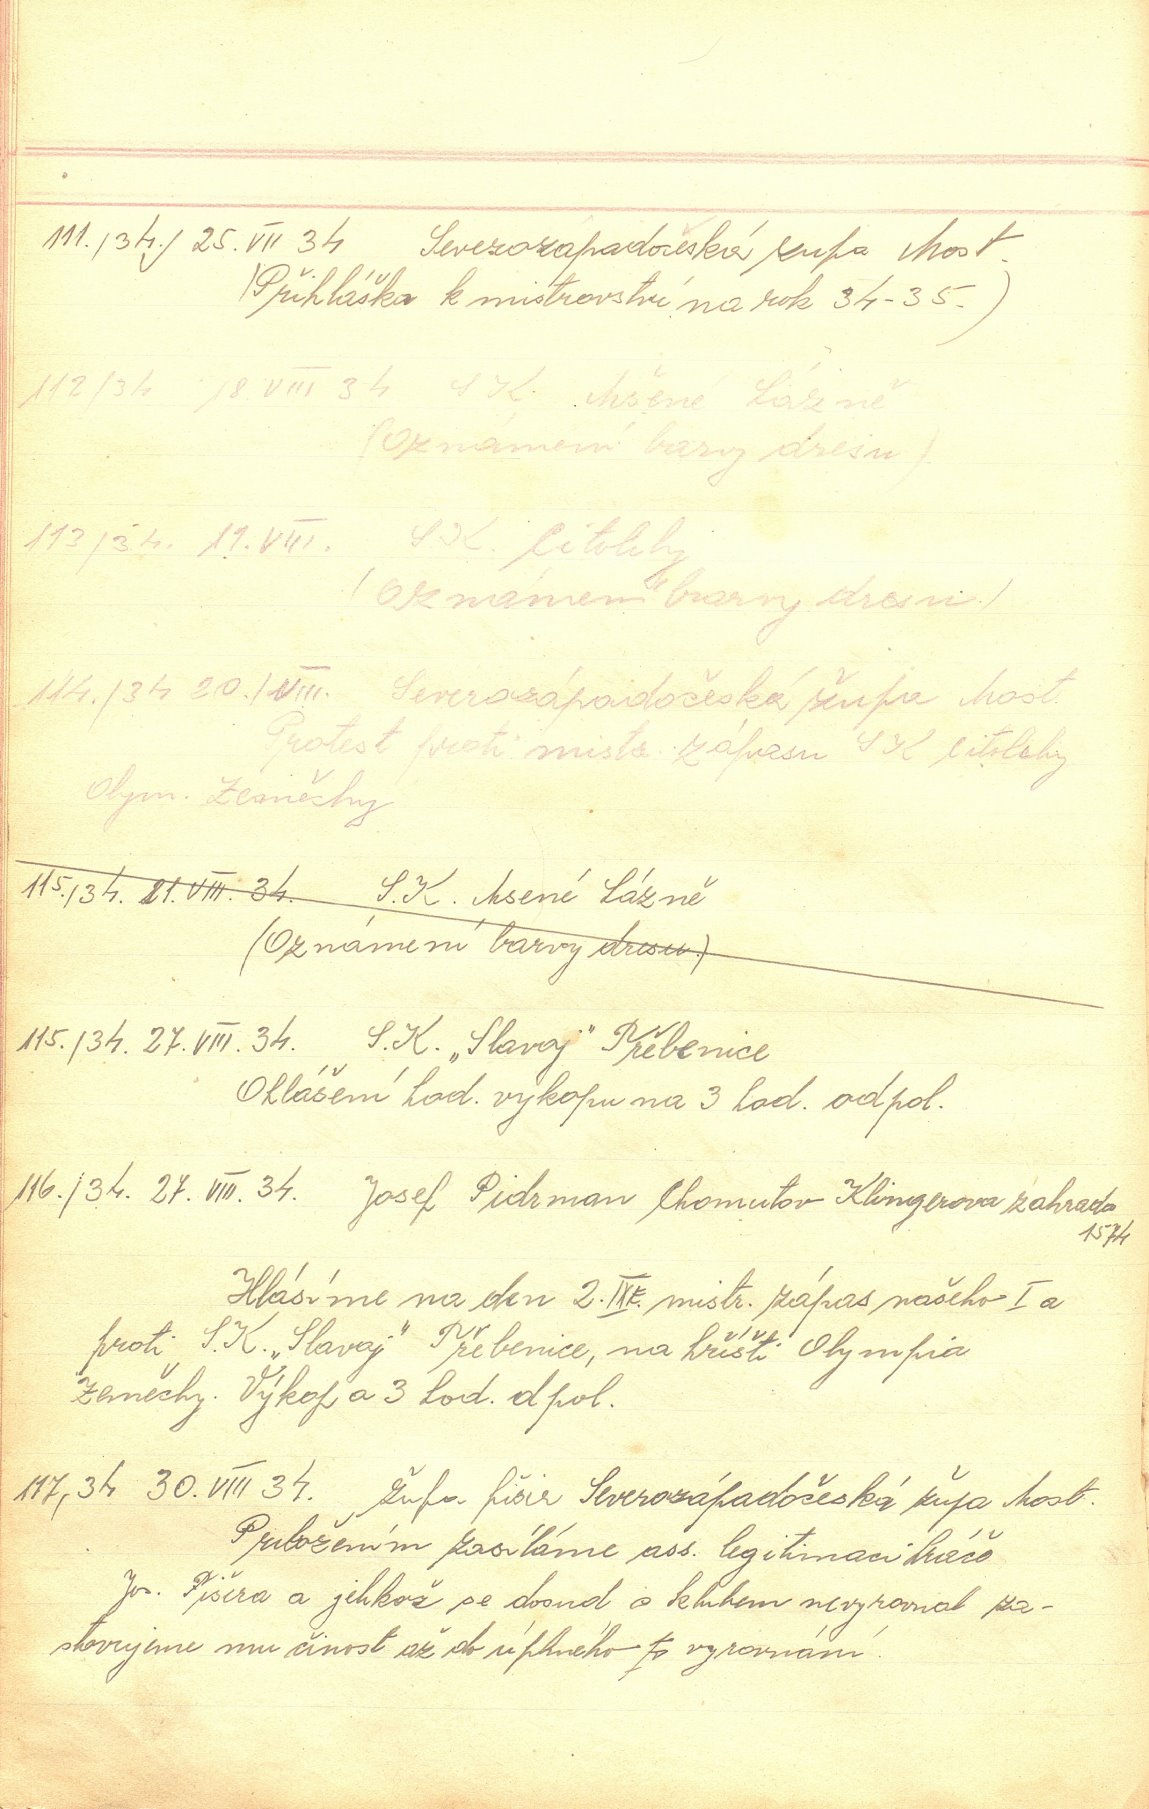 111./34./ 25. VII 34 Severozápadočeská župa Most.
(Přihláška k mistrovství na rok 34-35.)
112/34 18 VIII 34 S K. Mšené Lázně
(Oznámení barvy dresu)
113/34. 19. VIII. S K. Citoliby
(Oznámení barvy dresu.)
114./34 20./VIII. Severozápadočeská župa Most.
Protest proti mistr. zápasu S K Citoliby
Olym. Zeměchy
115./34. 21. VIII. 34. S.K. Msené Lázně
(Oznámení barvy dresu.)
115./34. 27. VIII. 34. S.K. „Slavoj" Třebenice
Ohlášení hod. výkopu na 3 hod. odpol.
116./34. 27. VIII. 34. Josef Pidrman Chomutov Klingerova zahrada
1574
Hlásíme na den 2. IX. mistr. zápas našeho I a
proti S.K. „Slavoj" Třebenice, na hřišti Olympia
Zeměchy. Výkop a 3 hod. dpol.
117, 34 30. VIII 34. Župa Severozápadočeská župa Most.
Přiložením zasíláme ass. legitimaci hráče
Jos. Pišera a jelikož se dosud s klubem nevyrovnal za-
stavujeme mu činost až do úplného vyrovnání.